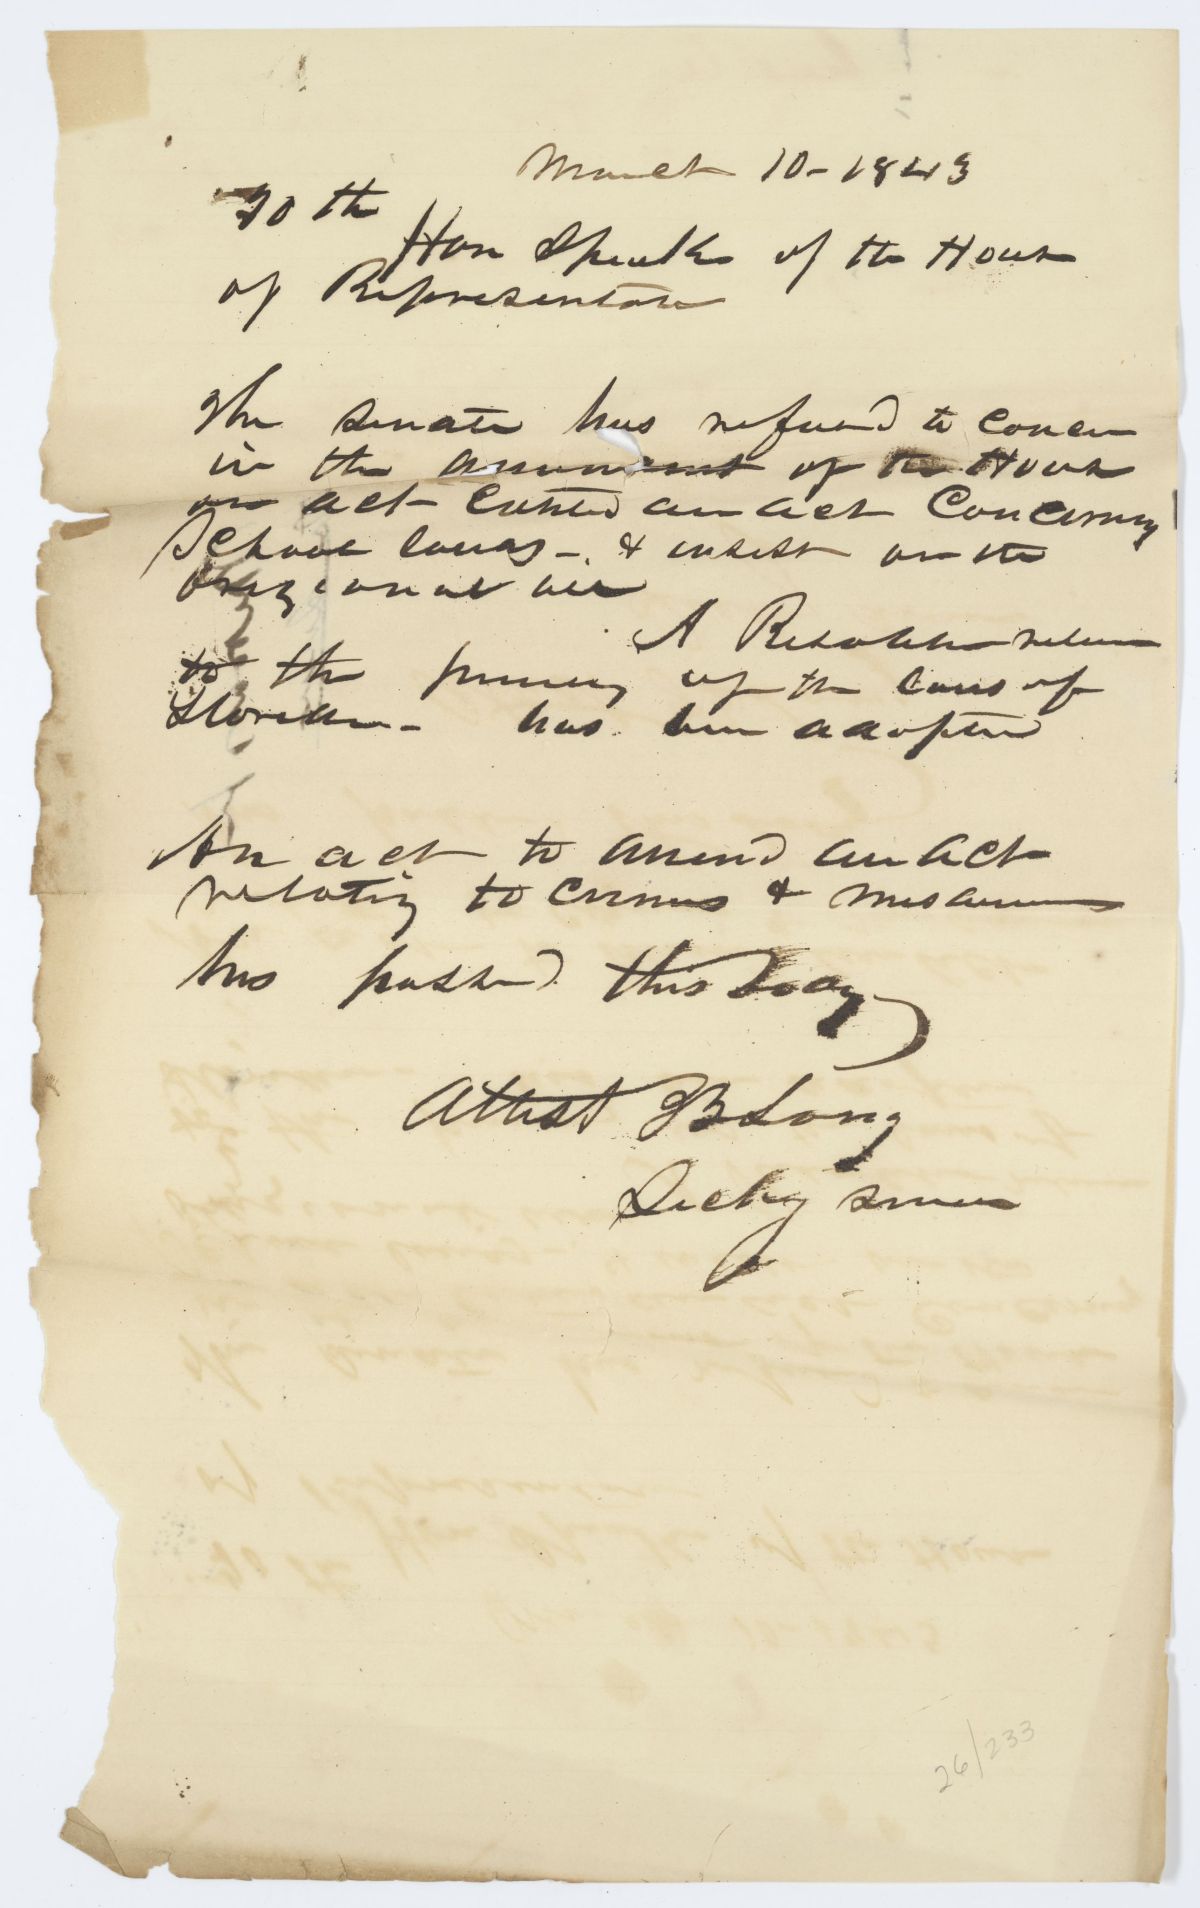 March 10-1843
To th
Hon Speaker of the House
of Representative
The senate has refused to concur
in the amendment of the House
on act Entitled an act Concerning
School lands - & insist on the
original
A Resolution relative
to the of the laws of
Florida - has been adopted
An act to amend an act
relating to crimes & misdemeanors
has passed this day
Attest TB Long
Secty senate
26/233